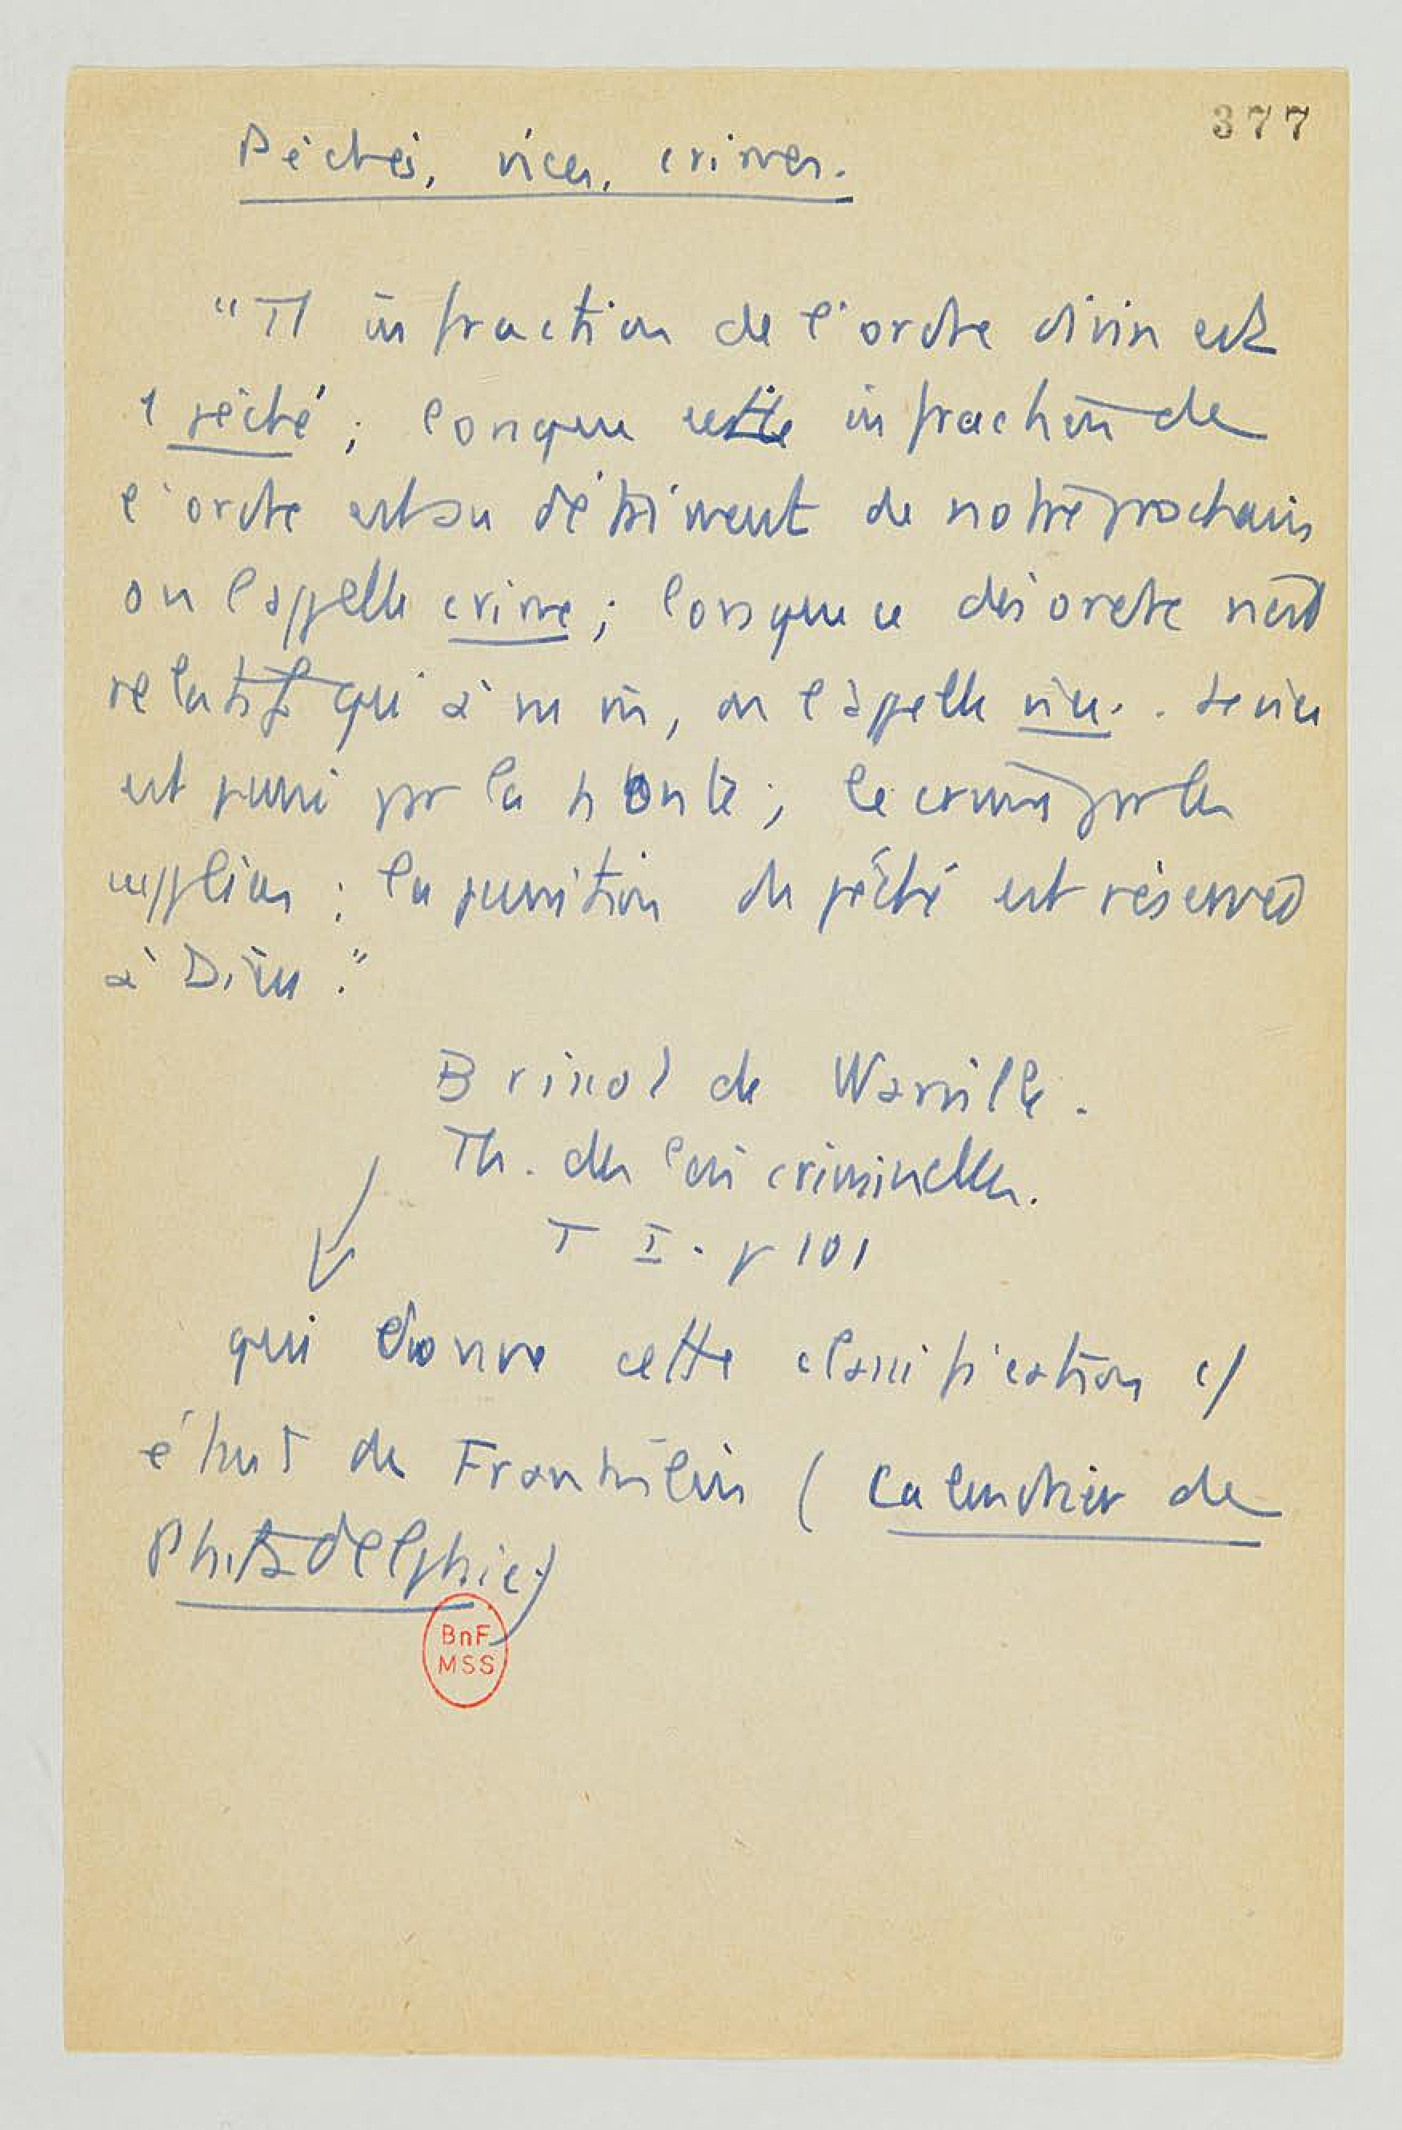 377
Péchés, vices, crimes.
"Tt infraction de l'ordre divin est
1 péché ; lorsque cette infraction de
l'ordre est au détriment de notre prochain
on l'appelle crime ; lorsque ce désordre n'est
relatif qu'à ns, on l'appelle vice. . Le vice
est puni par la honte ; le crime par les
supplices ; la punition du péché est réservée
à Dieu."
Brissot de Warville.
Th. des lois criminelles.
T I. p 101
qui donne cette classification c/
étant de Franklin ( Calendrier de
Philadelphie)
BnF
MSS